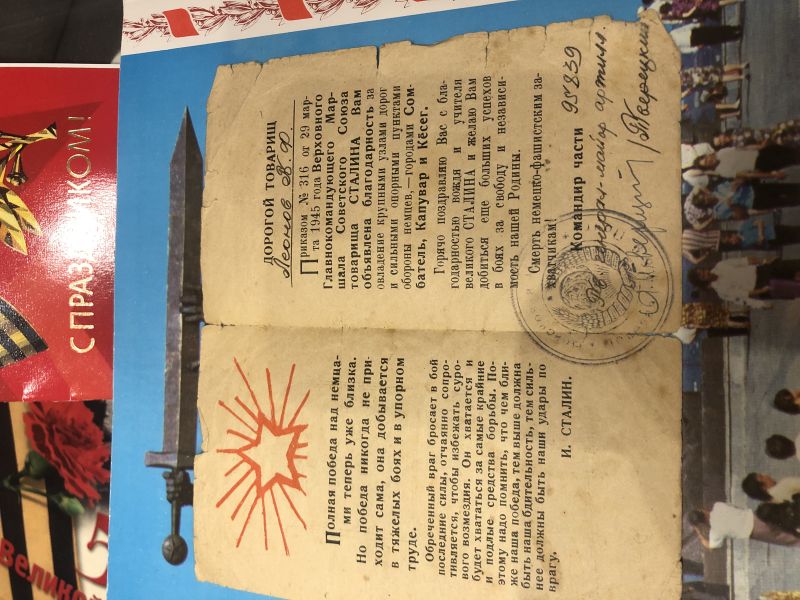 С ПРАЗДНИКОМ!
Великой
5
Полная победа над немца-
ми теперь уже близка.
Но победа никогда не при-
ходит сама, она добывается
в тяжелых боях и в упорном
труде.
Обреченный враг бросает в бой
последние силы, отчаянно сопро-
тивляется, чтобы избежать суро-
вого возмездия. Он хватается и
будет хвататься за самые крайние
и подлые средства борьбы. По-
этому надо помнить, что чем бли-
же наша победа, тем выше должна
быть наша бдительность, тем силь-
нее должны быть наши удары по
врагу.
И. СТАЛИН.
ДОРОГОЙ ТОВАРИЩ
Леонов В. Ф.
Приказом № 316 от 29 мар-
та 1945 года Верховного
Главнокомандующего Мар-
шала Советского Союза
товарища СТАЛИНА Вам
объявлена благодарность за
овладение крупными узлами дорог
и сильными опорными пунктами
обороны немцев,—городами Сом-
батель, Капувар и Кёсег.
Горячо поздравляю Вас с бла-
годарностью вождя и учителя
великого СТАЛИНА и желаю Вам
добиться еще больших успехов
в боях за свободу и независи-
мость нашей Родины.
Смерть немецко-фашистским за-
хватчикам!
Командир части 95839
генерал-майор артилл.